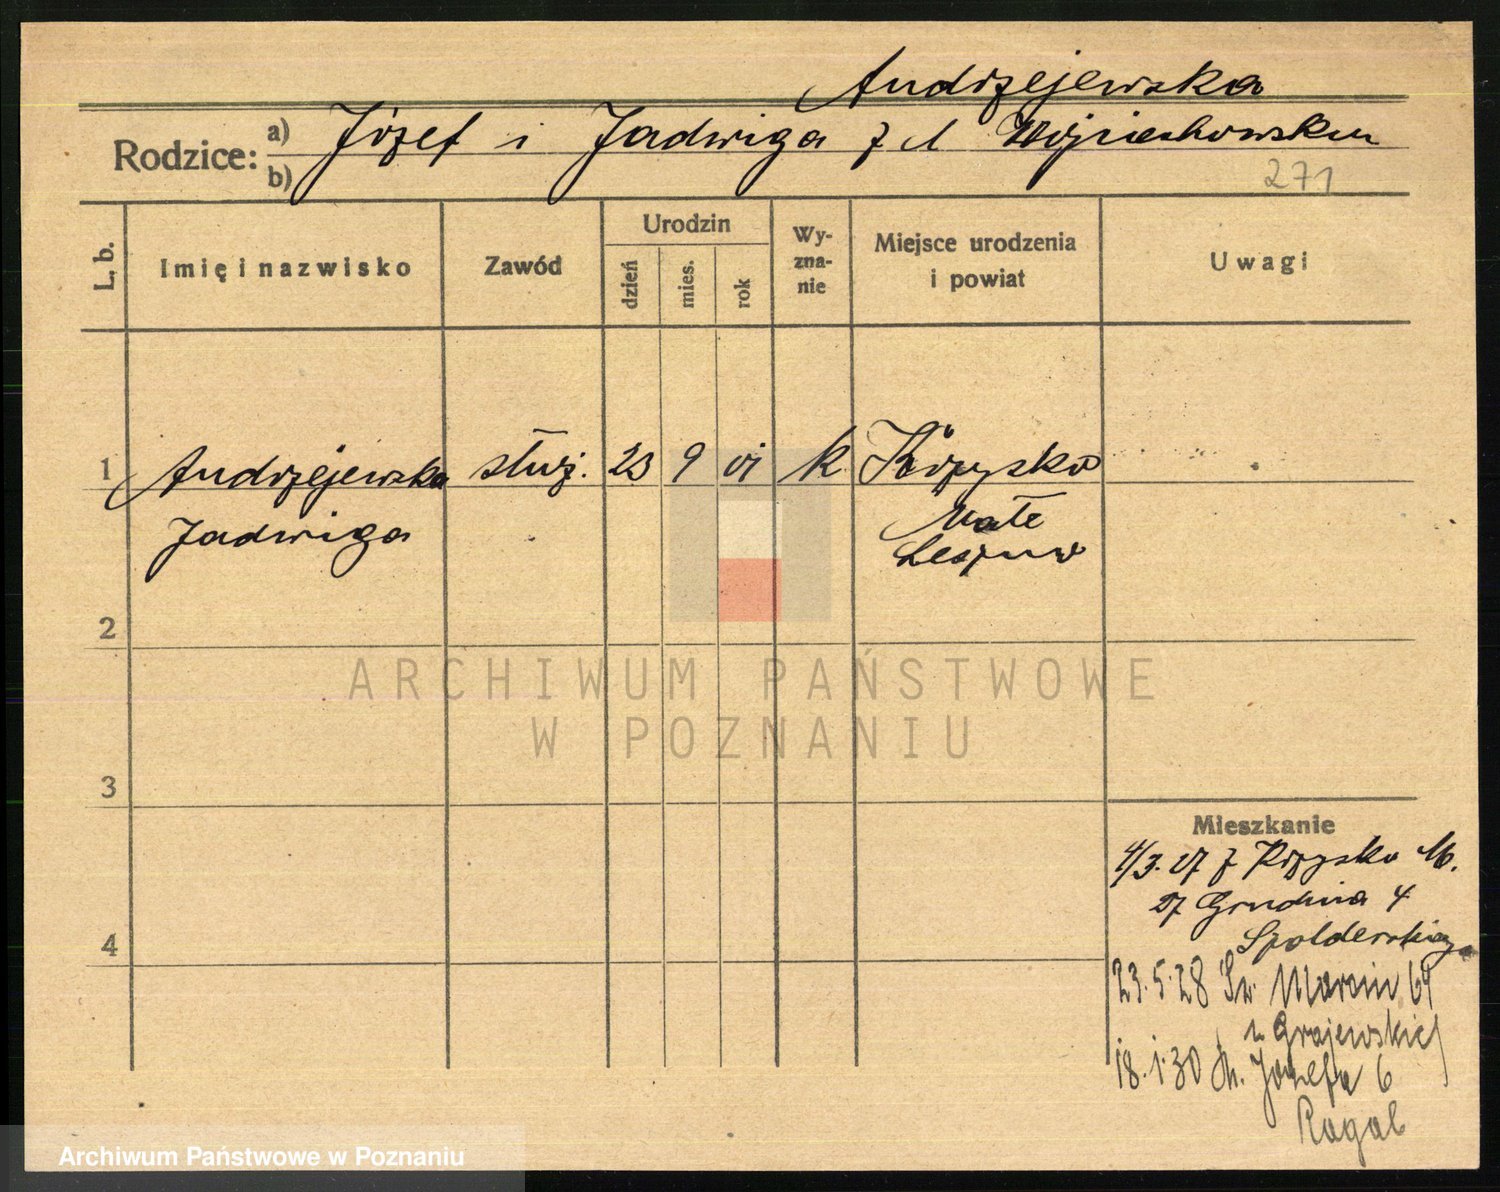 Andrzejewska
Rodzice: a) Józef i Jadwiga z d Wojciechowska
b)
271
L. b.
Imię i nazwisko
Zawód
Urodzin
dzień
mies.
rok
Wy-
zna-
nie
Miejsce urodzenia
i powiat
Uwagi
1 Andrzejewska służ. 23 9 k Krzycko
Jadwiga
Małe
Leszno
2
3
4
Mieszkanie
4/3.27 z Krzycko M.
27 Grudnia 4
23.5.28 Św. Marcin 64
u Grajewskiej
18.1.30 Józefa 6
Rogal
ARCHIWUM PAŃSTWOWE
W POZNANIU
Archiwum Państwowe w Poznaniu